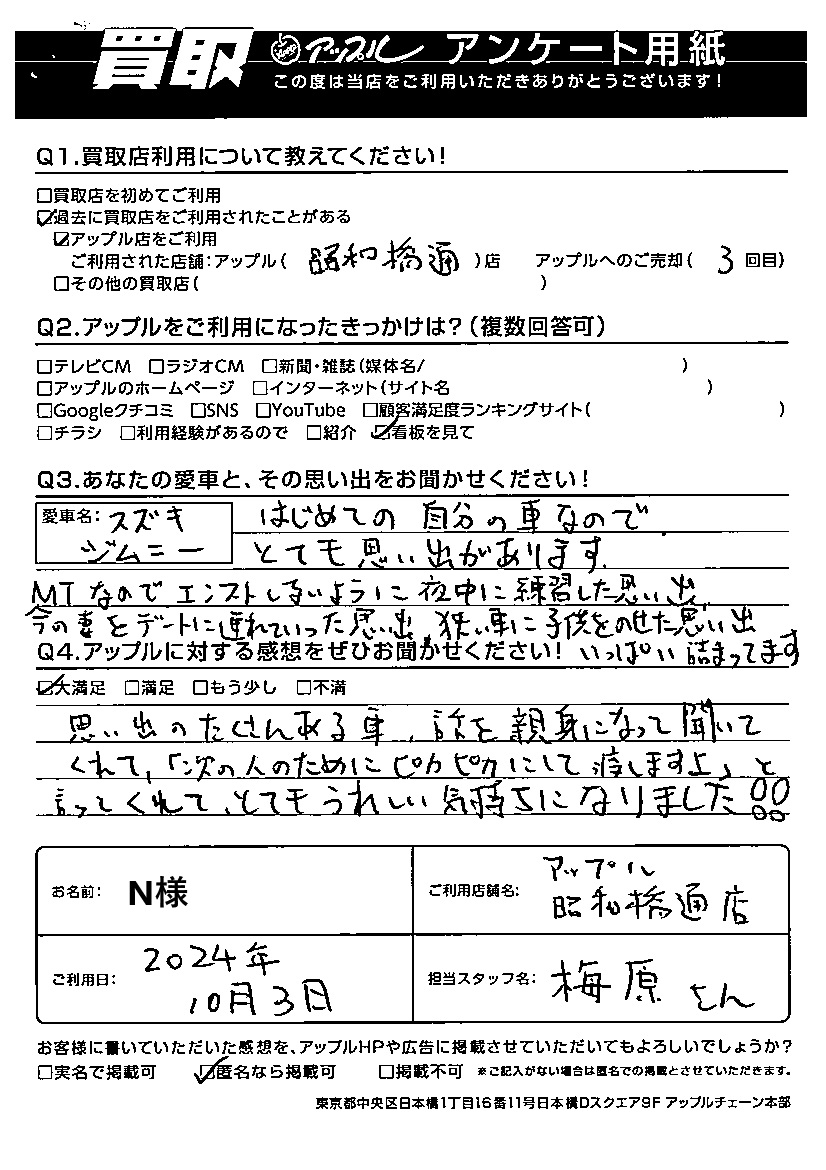 買取 アップル アンケート用紙
この度は当店をご利用いただきありがとうございます!
Q1.買取店利用について教えてください!
□買取店を初めてご利用
☑過去に買取店をご利用されたことがある
☑アップル店をご利用
ご利用された店舗:アップル( 昭和橋通 )店 アップルへのご売却( 3 回目)
□その他の買取店( )
Q2.アップルをご利用になったきっかけは?(複数回答可)
□テレビCM □ラジオCM □新聞・雑誌(媒体名/ )
□アップルのホームページ □インターネット(サイト名 )
□Googleクチコミ □SNS □YouTube □顧客満足度ランキングサイト( )
□チラシ □利用経験があるので □紹介 ☑看板を見て
Q3.あなたの愛車と、その思い出をお聞かせください!
愛車名: スズキ はじめての 自分の車なので
ジムニー とても思い出があります.
MTなのでエンストしないように夜中に練習した思い出、
今の妻をデートに連れていった思い出、狭い車に子供をのせた思い出
Q4.アップルに対する感想をぜひお聞かせください! いっぱい詰まってます
☑大満足 □満足 □もう少し □不満
思い出のたくさんある車、話を親身になって聞いて
くれて、「次の人のためにピカピカにして渡しますよ」と
言ってくれて、とてもうれしい気持ちになりました!!
お名前: N様 ご利用店舗名: アップル
昭和橋通店
ご利用日: 2024年
10月3日
担当スタッフ名: 梅原さん
お客様に書いていただいた感想を、アップルHPや広告に掲載させていただいてもよろしいでしょうか?
□実名で掲載可 ☑匿名なら掲載可 □掲載不可 ※ご記入がない場合は匿名での掲載とさせていただきます。
東京都中央区日本橋1丁目16番11号日本橋Dスクエア9F アップルチェーン本部